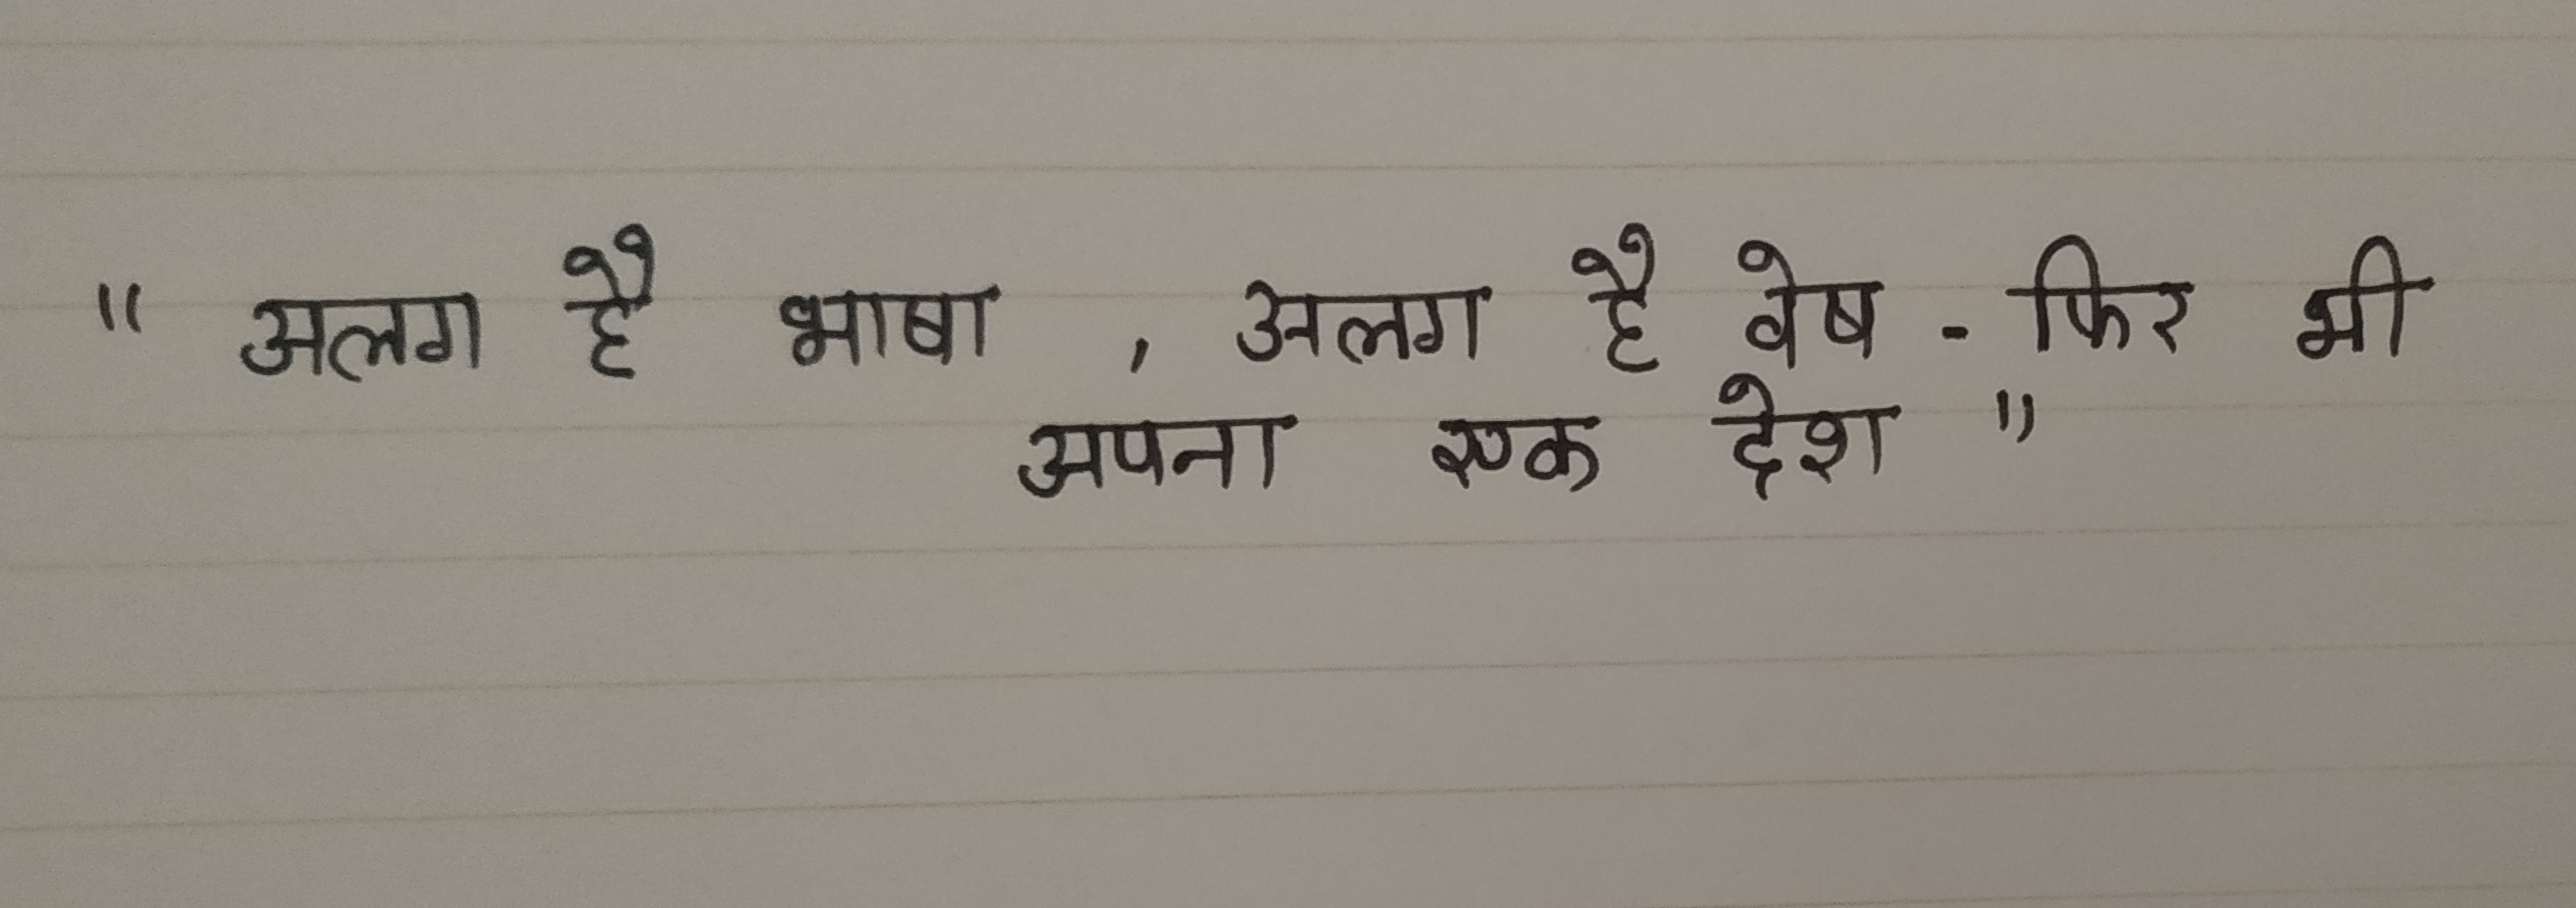 " अलग है भाषा , अलग है वेष - फिर भी
अपना एक देश "